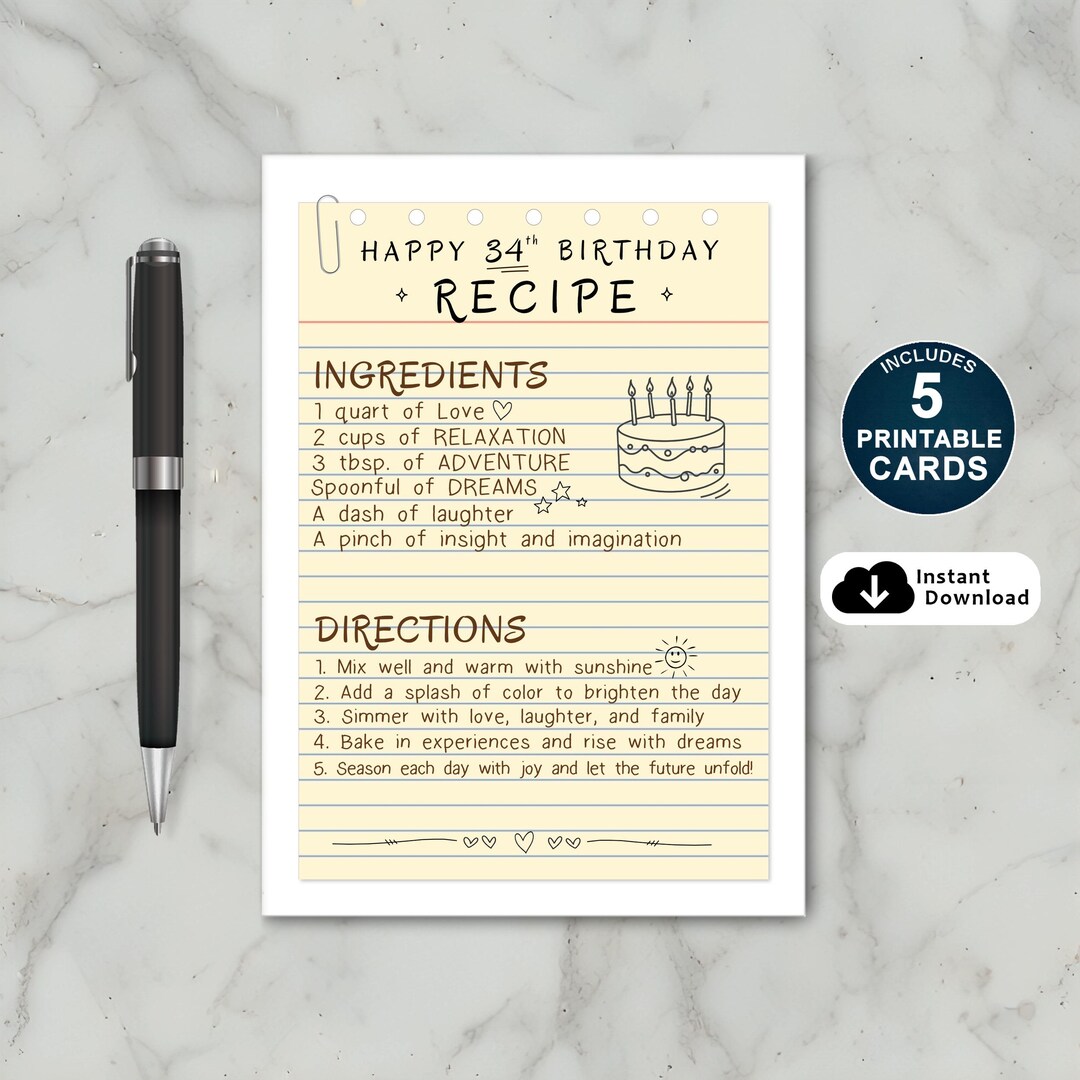 HAPPY 34th BIRTHDAY
RECIPE
INGREDIENTS
1 quart of Love
2 cups of RELAXATION
3 tbsp. of ADVENTURE
Spoonful of DREAMS
A dash of laughter
A pinch of insight and imagination
DIRECTIONS
1. Mix well and warm with sunshine
2. Add a splash of color to brighten the day
3. Simmer with love, laughter, and family
4. Bake in experiences and rise with dreams
5. Season each day with joy and let the future unfold!
INCLUDES
5
PRINTABLE
CARDS
Instant
Download